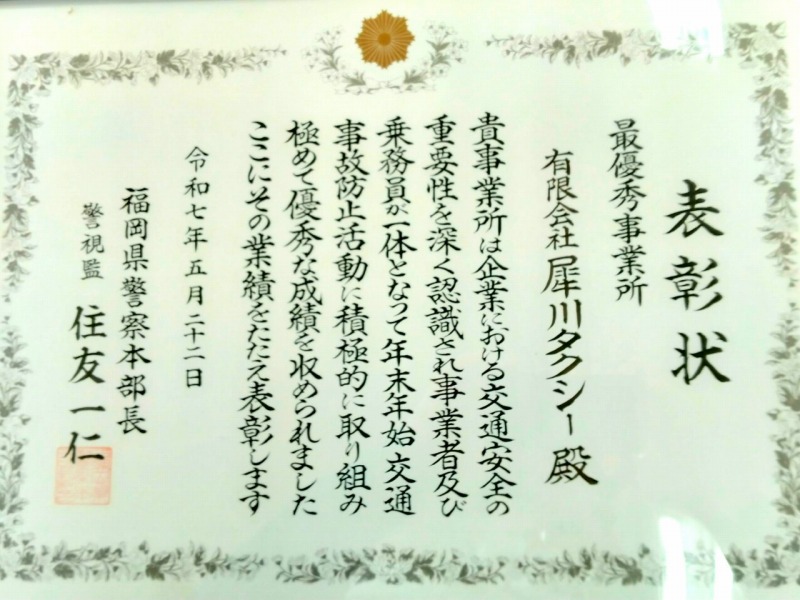 表彰状
最優秀事業所
有限会社 犀川タクシー 殿
貴事業所は企業における交通安全の
重要性を深く認識され事業者及び
乗務員が一体となって年末年始交通
事故防止活動に積極的に取り組み
極めて優秀な成績を収められました
ここにその業績をたたえ表彰します
令和七年五月二十二日
福岡県警察本部長
警視監 住友一仁